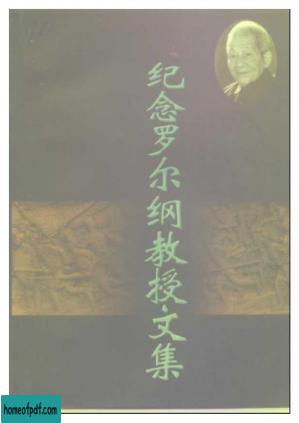 纪念罗尔纲教授·文集
homeofpdf.com